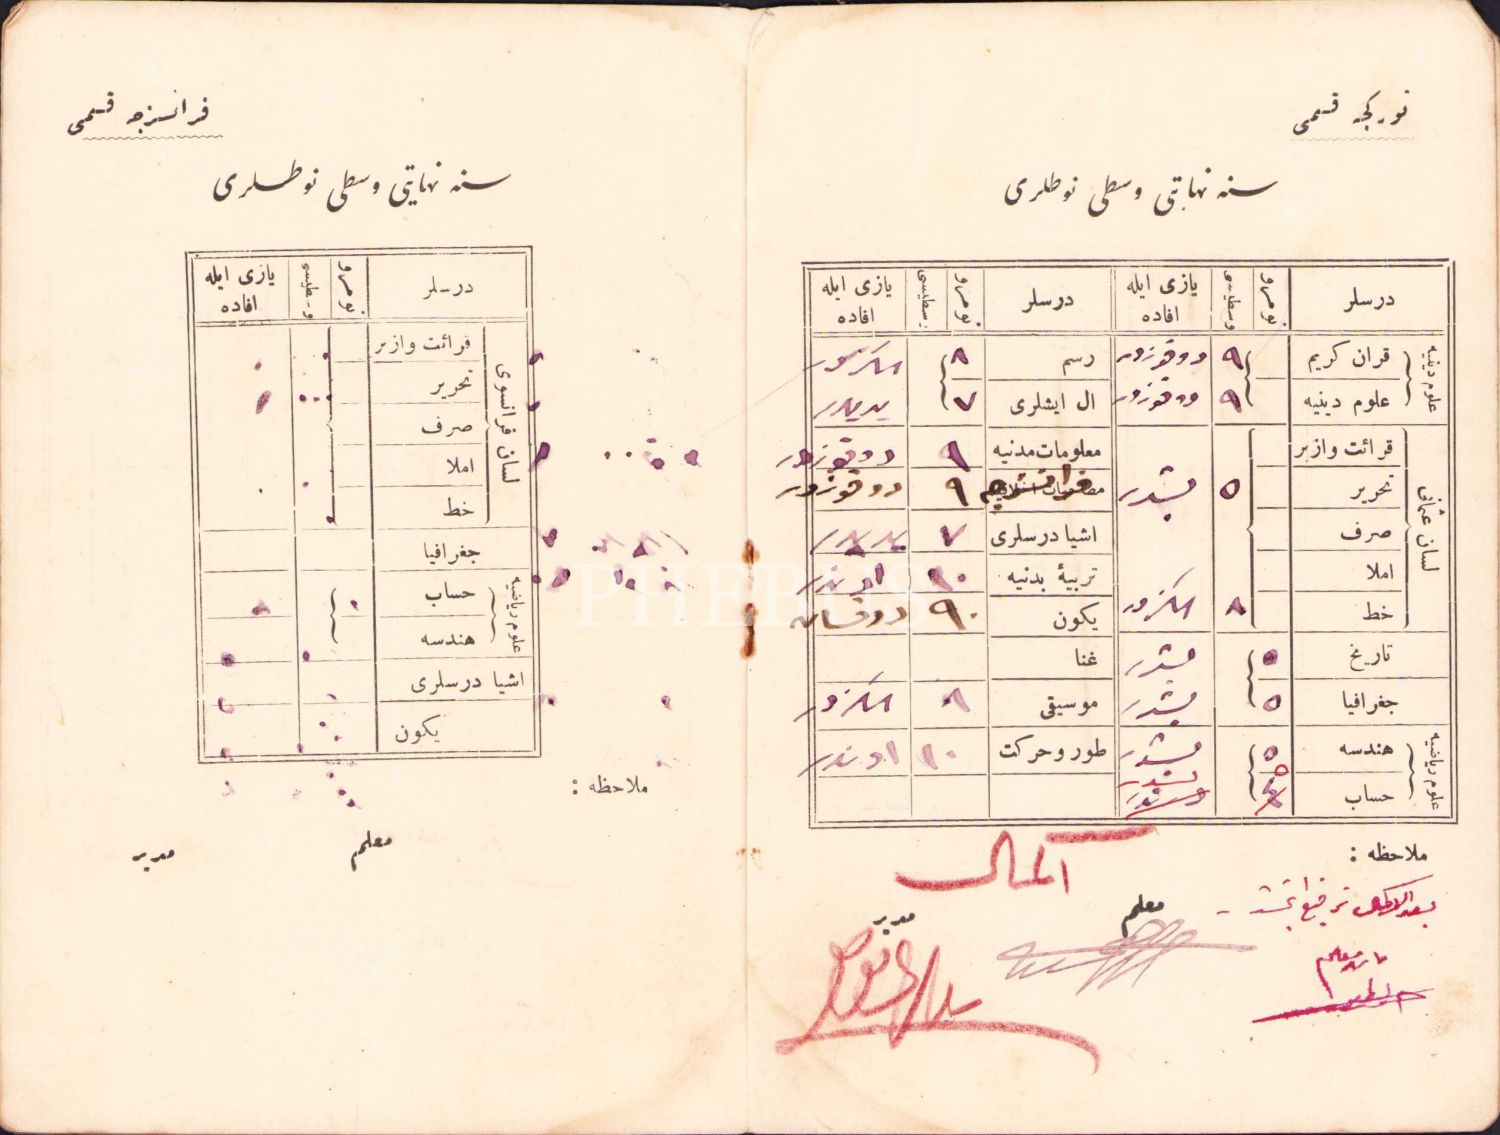 توركجه قسمی
سنه نهایتی وسطی نوطه‌لری
درسلر
نومرو
وسطیسی
یازی ایله افاده
درسلر
نومرو
وسطیسی
یازی ایله افاده
علوم دینیه
قران كریم
٩
دوقوزدر
علوم دینیه
٩
دوقوزدر
لسان عثمانی
قرائت وازبر
تحریر
٥
بشدر
صرف
املا
خط
٨
سكزدر
تاریخ
٥
بشدر
جغرافیا
٥
بشدر
علوم ریاضیه
هندسه
٥
بشدر
حساب
٥
بشدر
رسم
٨
سكزدر
ال ایشلری
٧
یدیدر
معلومات مدنیه
٩
دوقوزدر
٩
دوقوزدر
اشیا درسلری
٧
یدیدر
تربیهٔ بدنیه
١٠
اوندر
یكون
٩٠
دوقسان
غنا
موسیقی
٨
سكزدر
طور وحركت
١٠
اوندر
ملاحظه :
بعد الاكمال ترفیع ایتمشدر
معلم
مدیر
فرانسزجه قسمی
سنه نهایتی وسطی نوطه‌لری
درسلر
نومرو
وسطیسی
یازی ایله افاده
لسان فرانسوی
قرائت وازبر
تحریر
صرف
املا
خط
جغرافیا
علوم ریاضیه
حساب
هندسه
اشیا درسلری
یكون
ملاحظه :
معلم
مدیر
PHEBUS